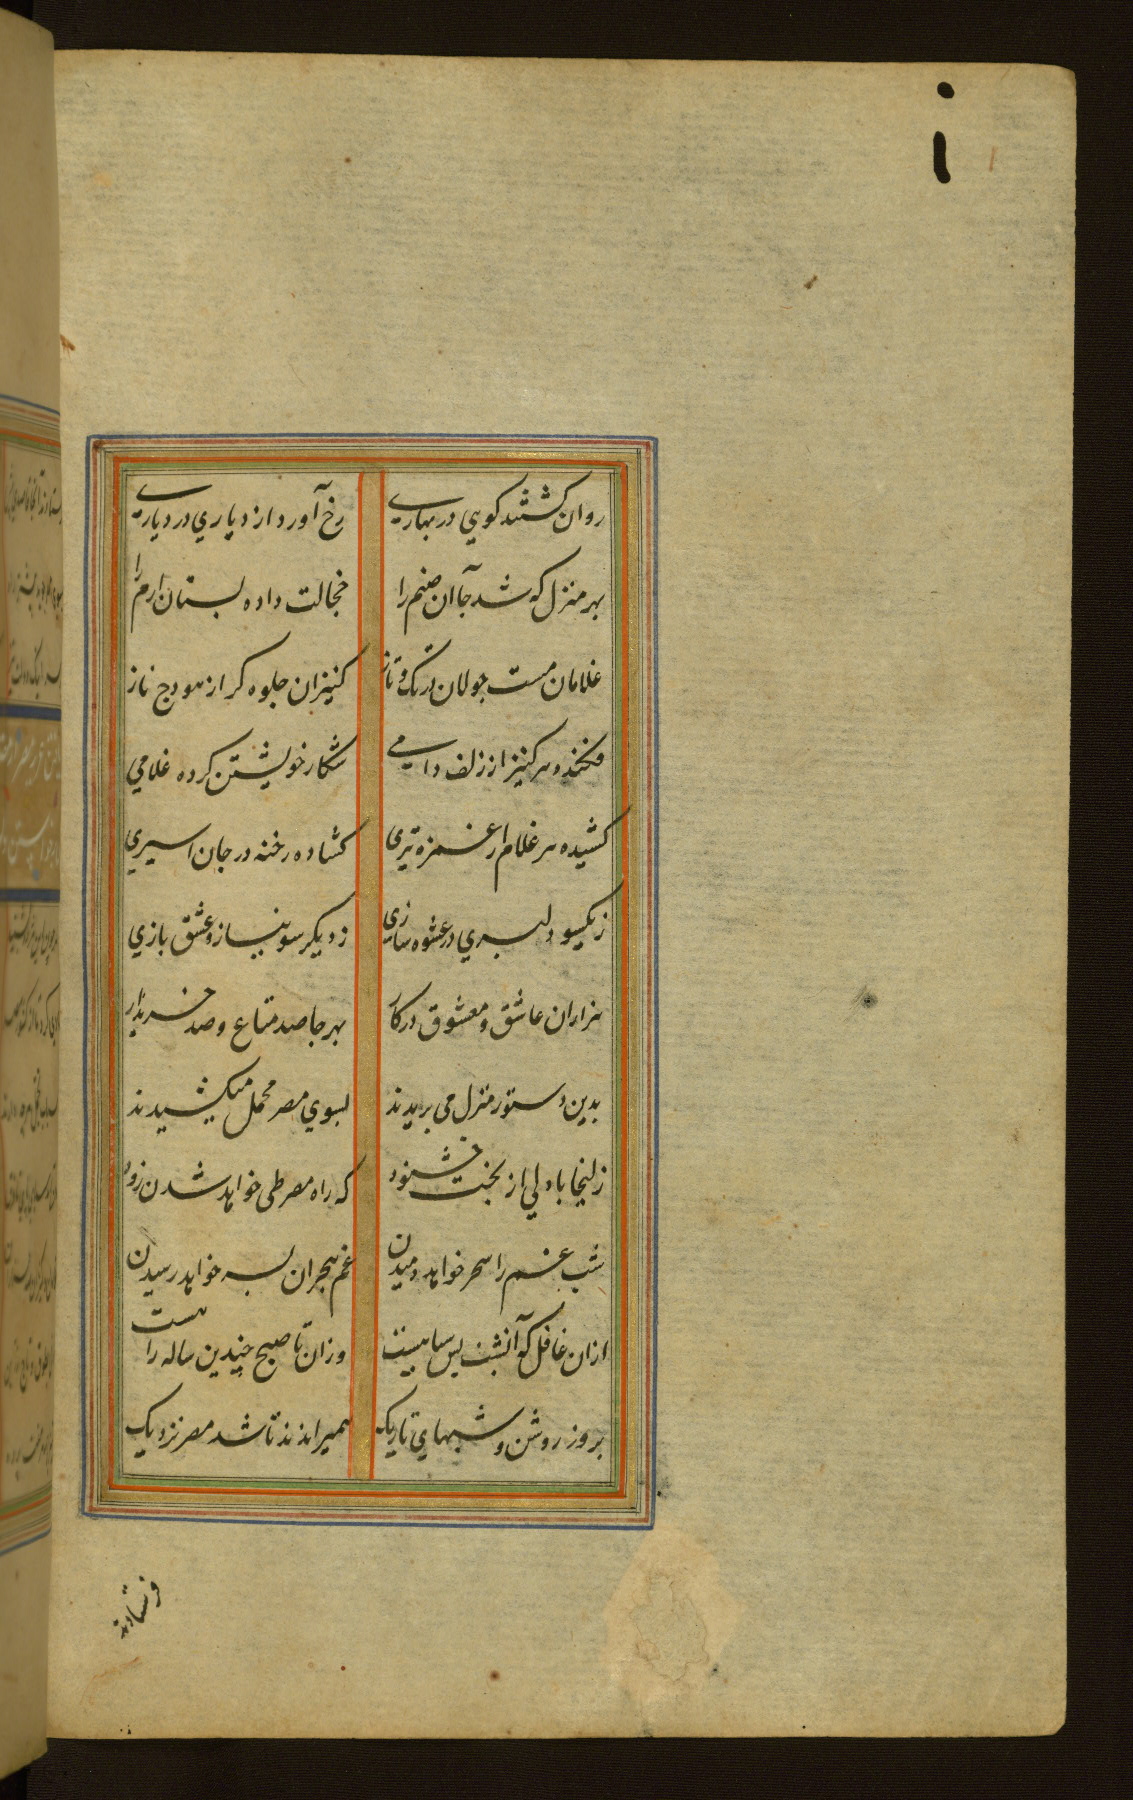 روان گشتند کویی در بهاری رخ آورد از دیاری در دیاری
بهر منزل که شد جا آن صنم را خجالت داده بستان ارم را
غلامان مست جولان در تک و تاز کنیزان جلوه کر از هودج ناز
فکنده هر کنیز از زلف دامی شکار خویشتن کرده غلامی
کشیده هر غلام از غمزه تیری کشاده رخنه در جان اسیری
ز یکسو دلبری در عشوه سازی ز دیکر سو نیاز و عشق بازی
هزاران عاشق و معشوق در کار بهر جا صد متاع و صد خریدار
بدین دستور منزل می بریدند بسوی مصر محمل میکشیدند
زلیخا با دلی از بخت خشنود که راه مصر طی خواهد شدن زود
شب غم را سحر خواهد دمیدن غم هجران بسر خواهد رسیدن
ازان غافل که آنشب بس سیاهست وزان تا صبح چندین ساله راهست
بروز روشن و شبهای تاریک همیراندند تا شد مصر نزدیک
فرستادند